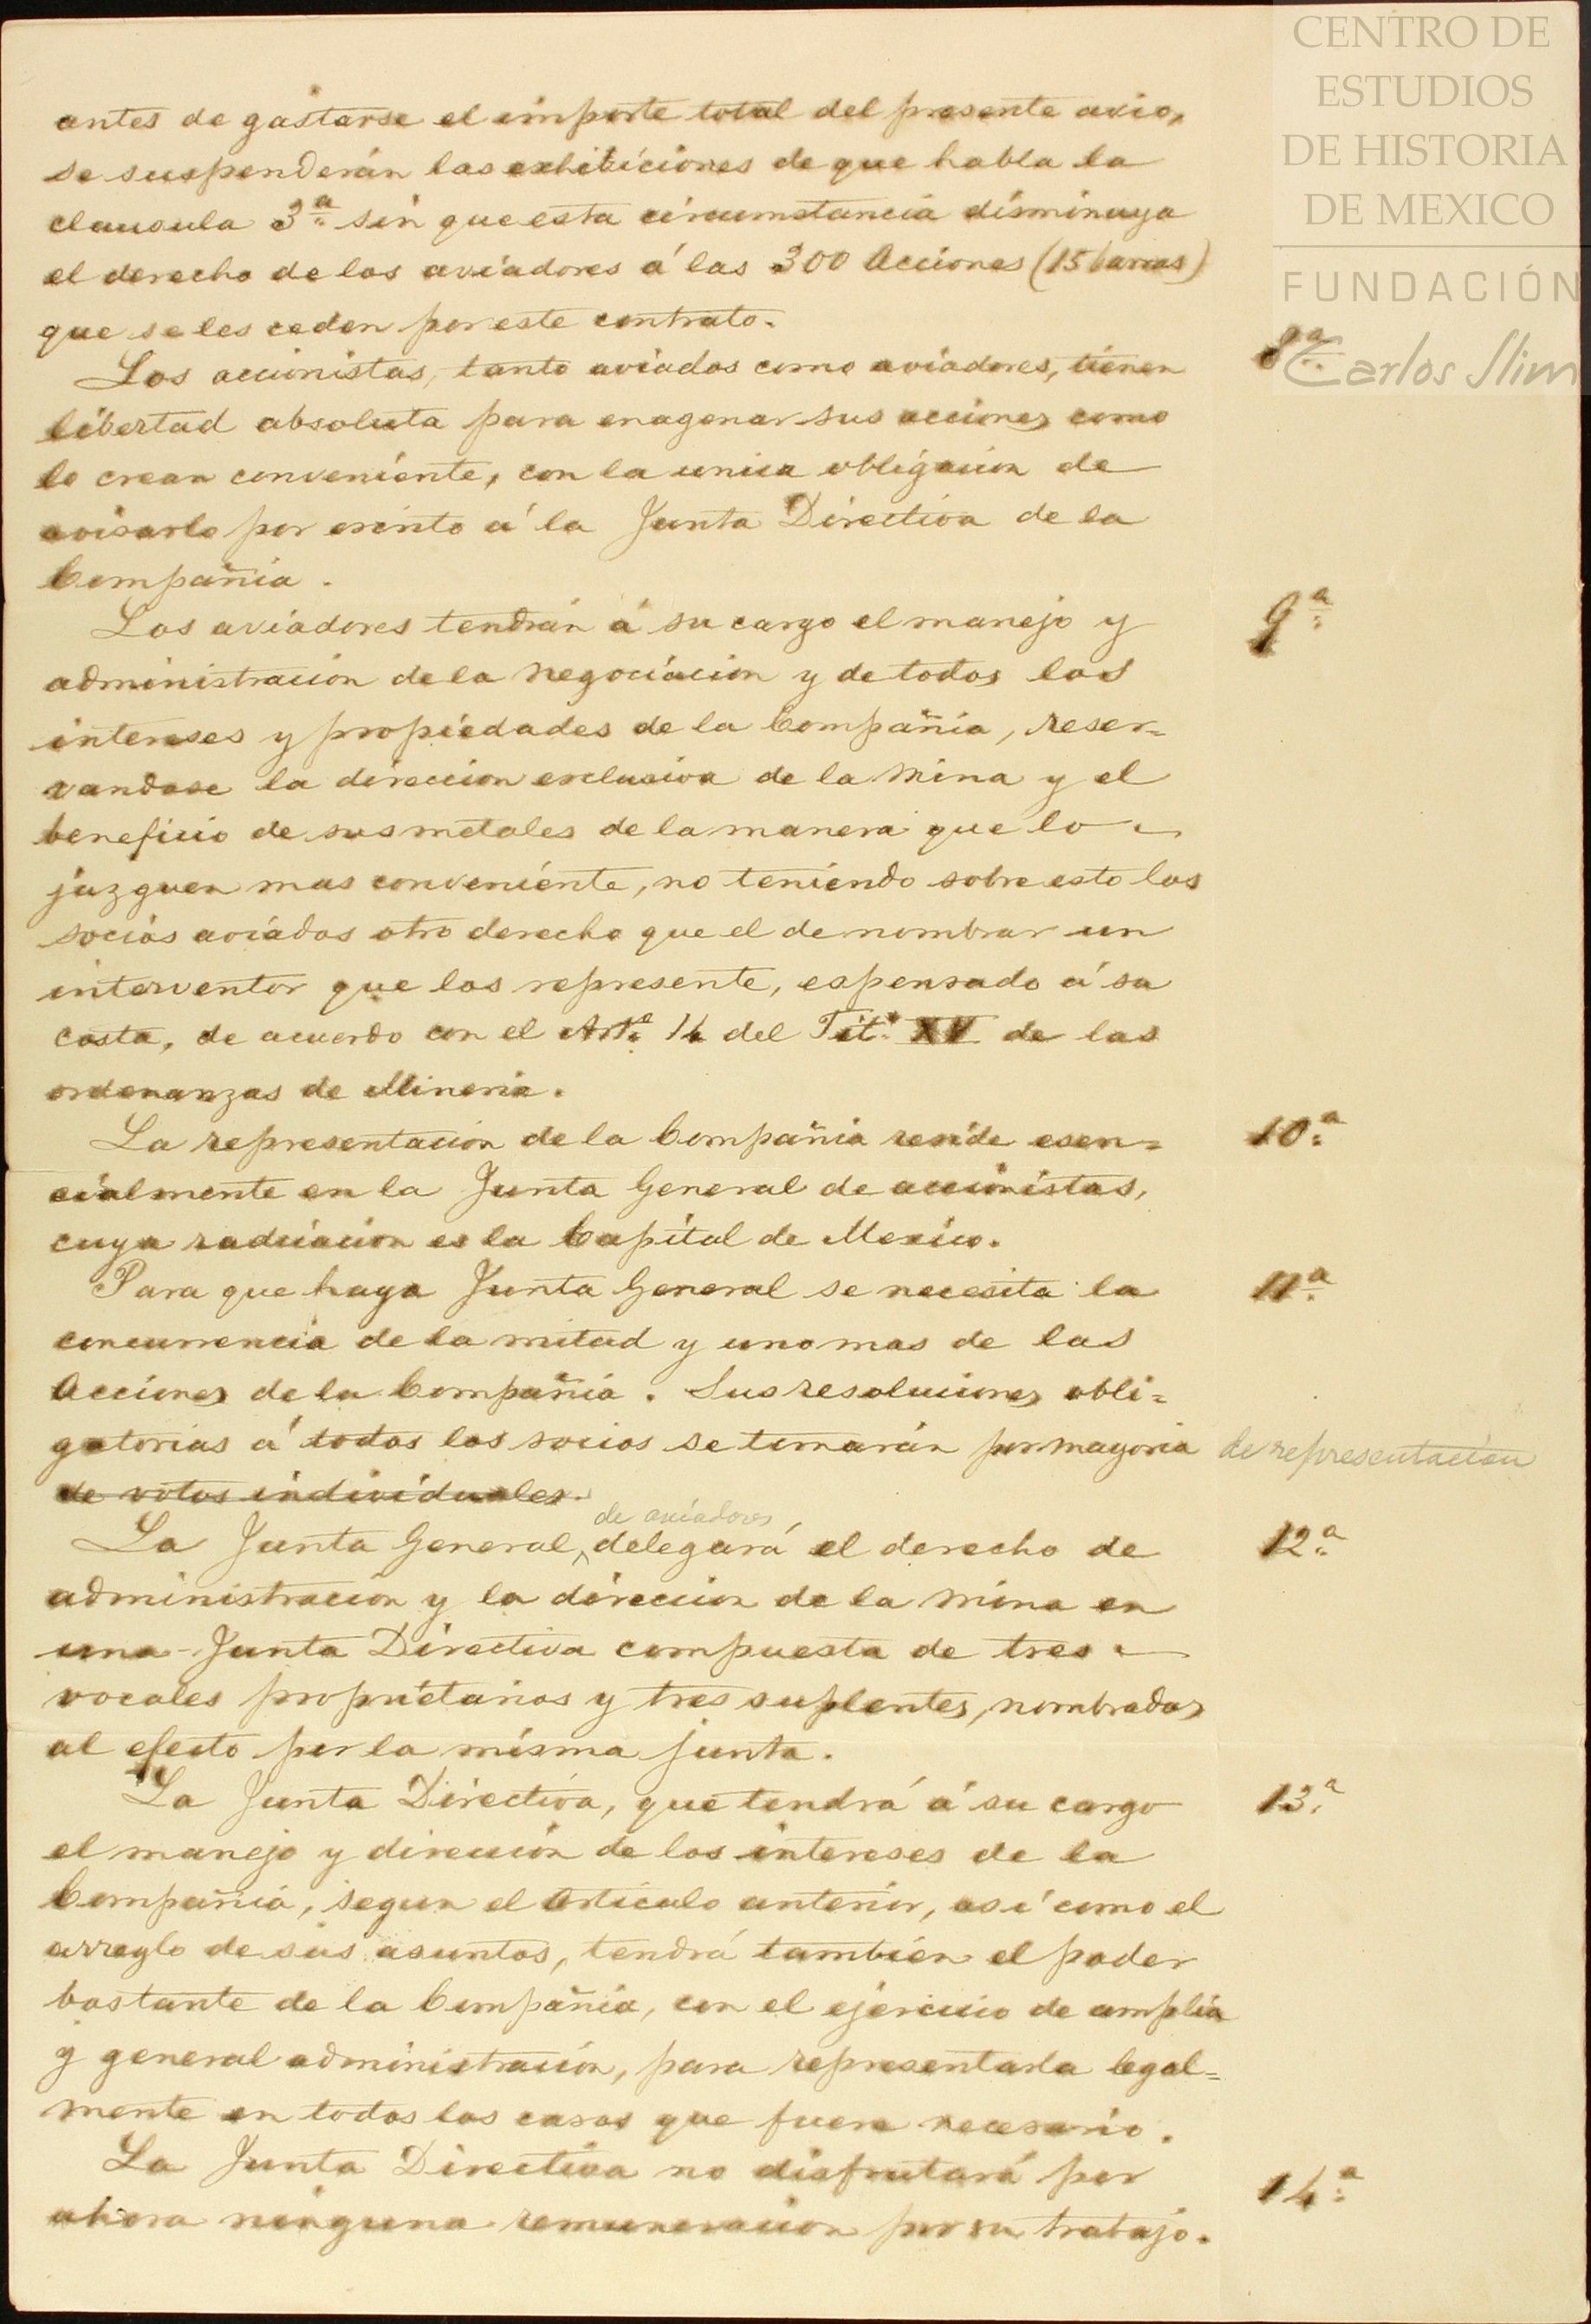 CENTRO DE
ESTUDIOS
DE HISTORIA
DE MEXICO
FUNDACIÓN
Carlos Slim
antes de gastarse el importe total del presente avio,
se suspenderán las exhibiciones de que habla la
clausula 3ª sin que esta circumstancia disminuya
el derecho de los aviadores á las 300 Acciones (15 barras)
que se les ceden por este contrato.
Los accionistas, tanto aviados como aviadores, tienen 8ª
libertad absoluta para enagenar sus acciones como
lo crean conveniente, con la unica obligacion de
avisarlo por escrito á la Junta Directiva de la
Compañia.
Los aviadores tendrán á su cargo el manejo y 9ª
administracion de la negociacion y de todos los
intereses y propiedades de la Compañia, reser=
vandose la direccion esclusiva de la mina y el
beneficio de sus metales de la manera que lo
juzguen mas conveniente, no teniendo sobre esto los
socios aviados otro derecho que el de nombrar un
interventor que los represente, espensado á su
costa, de acuerdo con el Artº 14 del Titº XV de las
ordenanzas de Mineria.
La representacion de la Compañia reside esen= 10ª
cialmente en la Junta General de accionistas,
cuya radicacion es la Capital de Mexico.
Para que haya Junta General se necesita la 11ª
concurrencia de la mitad y uno mas de las
Acciones de la Compañia. Sus resoluciones obli=
gatorias á todos los socios se tomarán por mayoria de representacion
de votos individuales.
de aviadores
La Junta General, delegará el derecho de 12ª
administracion y la direccion de la mina en
una Junta Directiva compuesta de tres
vocales propietarios y tres suplentes, nombrados
al efecto por la misma junta.
La Junta Directiva, que tendrá á su cargo 13ª
el manejo y direccion de los intereses de la
Compañia, segun el Articulo anterior, asi como el
arreglo de sus asuntos, tendrá tambien el poder
bastante de la Compañia, con el ejercicio de amplia
y general administracion, para representarla legal=
mente en todos los casos que fuere necesario.
La Junta Directiva no disfrutará por 14ª
ahora ninguna remuneracion por su trabajo.